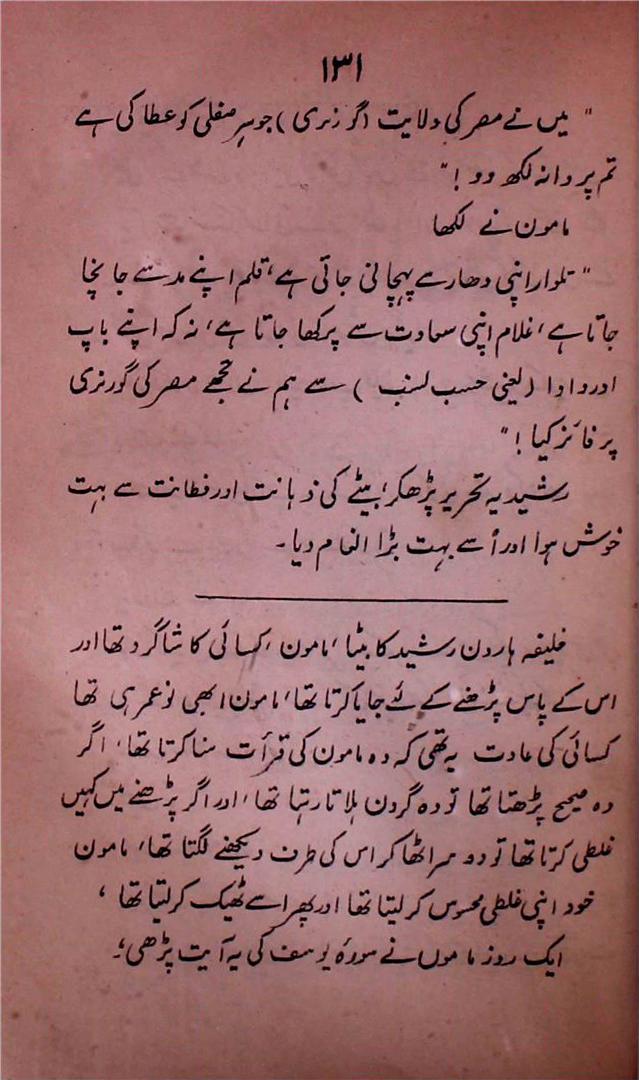 ۱۳۱
" میں نے مصر کی ولایت (گورنری) جوہر صقلی کو عطا کی ہے
تم پروانہ لکھ دو ! "
مامون نے لکھا
" تلوار اپنی دھار سے پہچانی جاتی ہے، قلم اپنے مد سے جانچا
جاتا ہے، غلام اپنی سعادت سے پرکھا جاتا ہے، نہ کہ اپنے باپ
اور دادا (یعنی حسب نسب ) سے ہم نے تجھے مصر کی گورنری
پر فائز کیا ! "
رشید یہ تحریر پڑھکر، بیٹے کی ذہانت اور فطانت سے بہت
خوش ہوا اور اُسے بہت بڑا انعام دیا۔
خلیفہ ہارون رشید کا بیٹا، مامون، کسائی کا شاگرد تھا اور
اس کے پاس پڑھنے کے لئے جایا کرتا تھا، مامون ابھی نو عمر ہی تھا
کسائی کی عادت یہ تھی کہ وہ مامون کی قرأت سنا کرتا تھا، اگر
وہ صحیح پڑھتا تھا تو وہ گردن ہلاتا رہتا تھا، اور اگر پڑھنے میں کہیں
غلطی کرتا تھا تو وہ سر اٹھا کر اس کی طرف دیکھنے لگتا تھا، مامون
خود اپنی غلطی محسوس کر لیتا تھا اور پھر اسے ٹھیک کر لیتا تھا ،
ایک روز ماموں نے سورۂ یوسف کی یہ آیت پڑھی؛۔